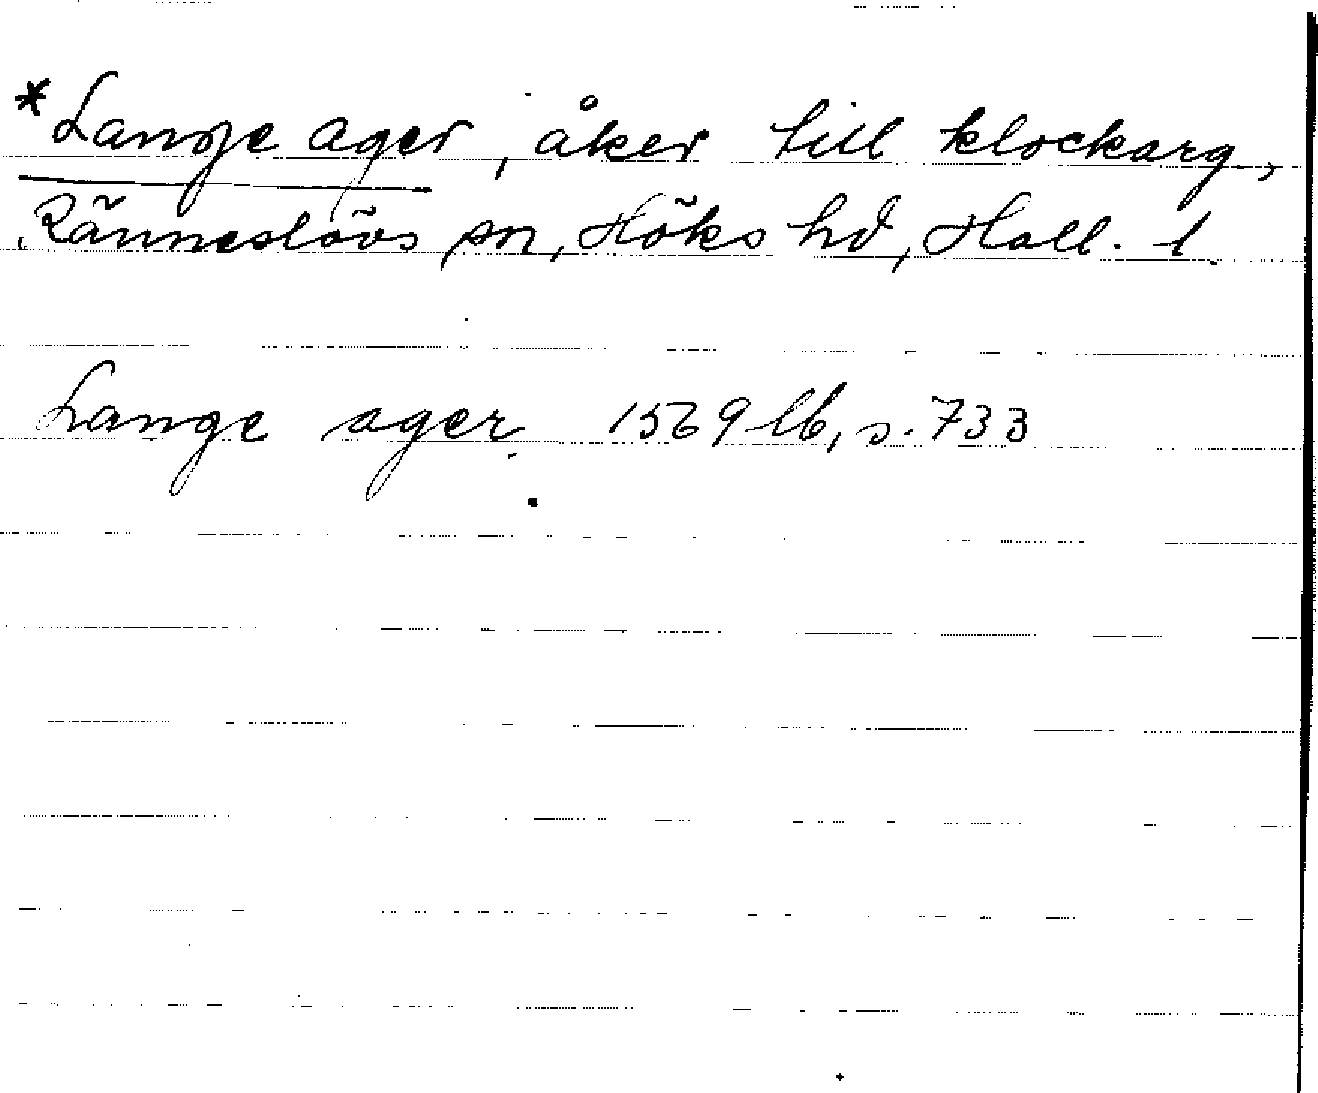 *Lange ager, åker till klockarg,
Ränneslövs sn, Höks hd, Hall. l.
Lange ager 1569 lb, s. 733